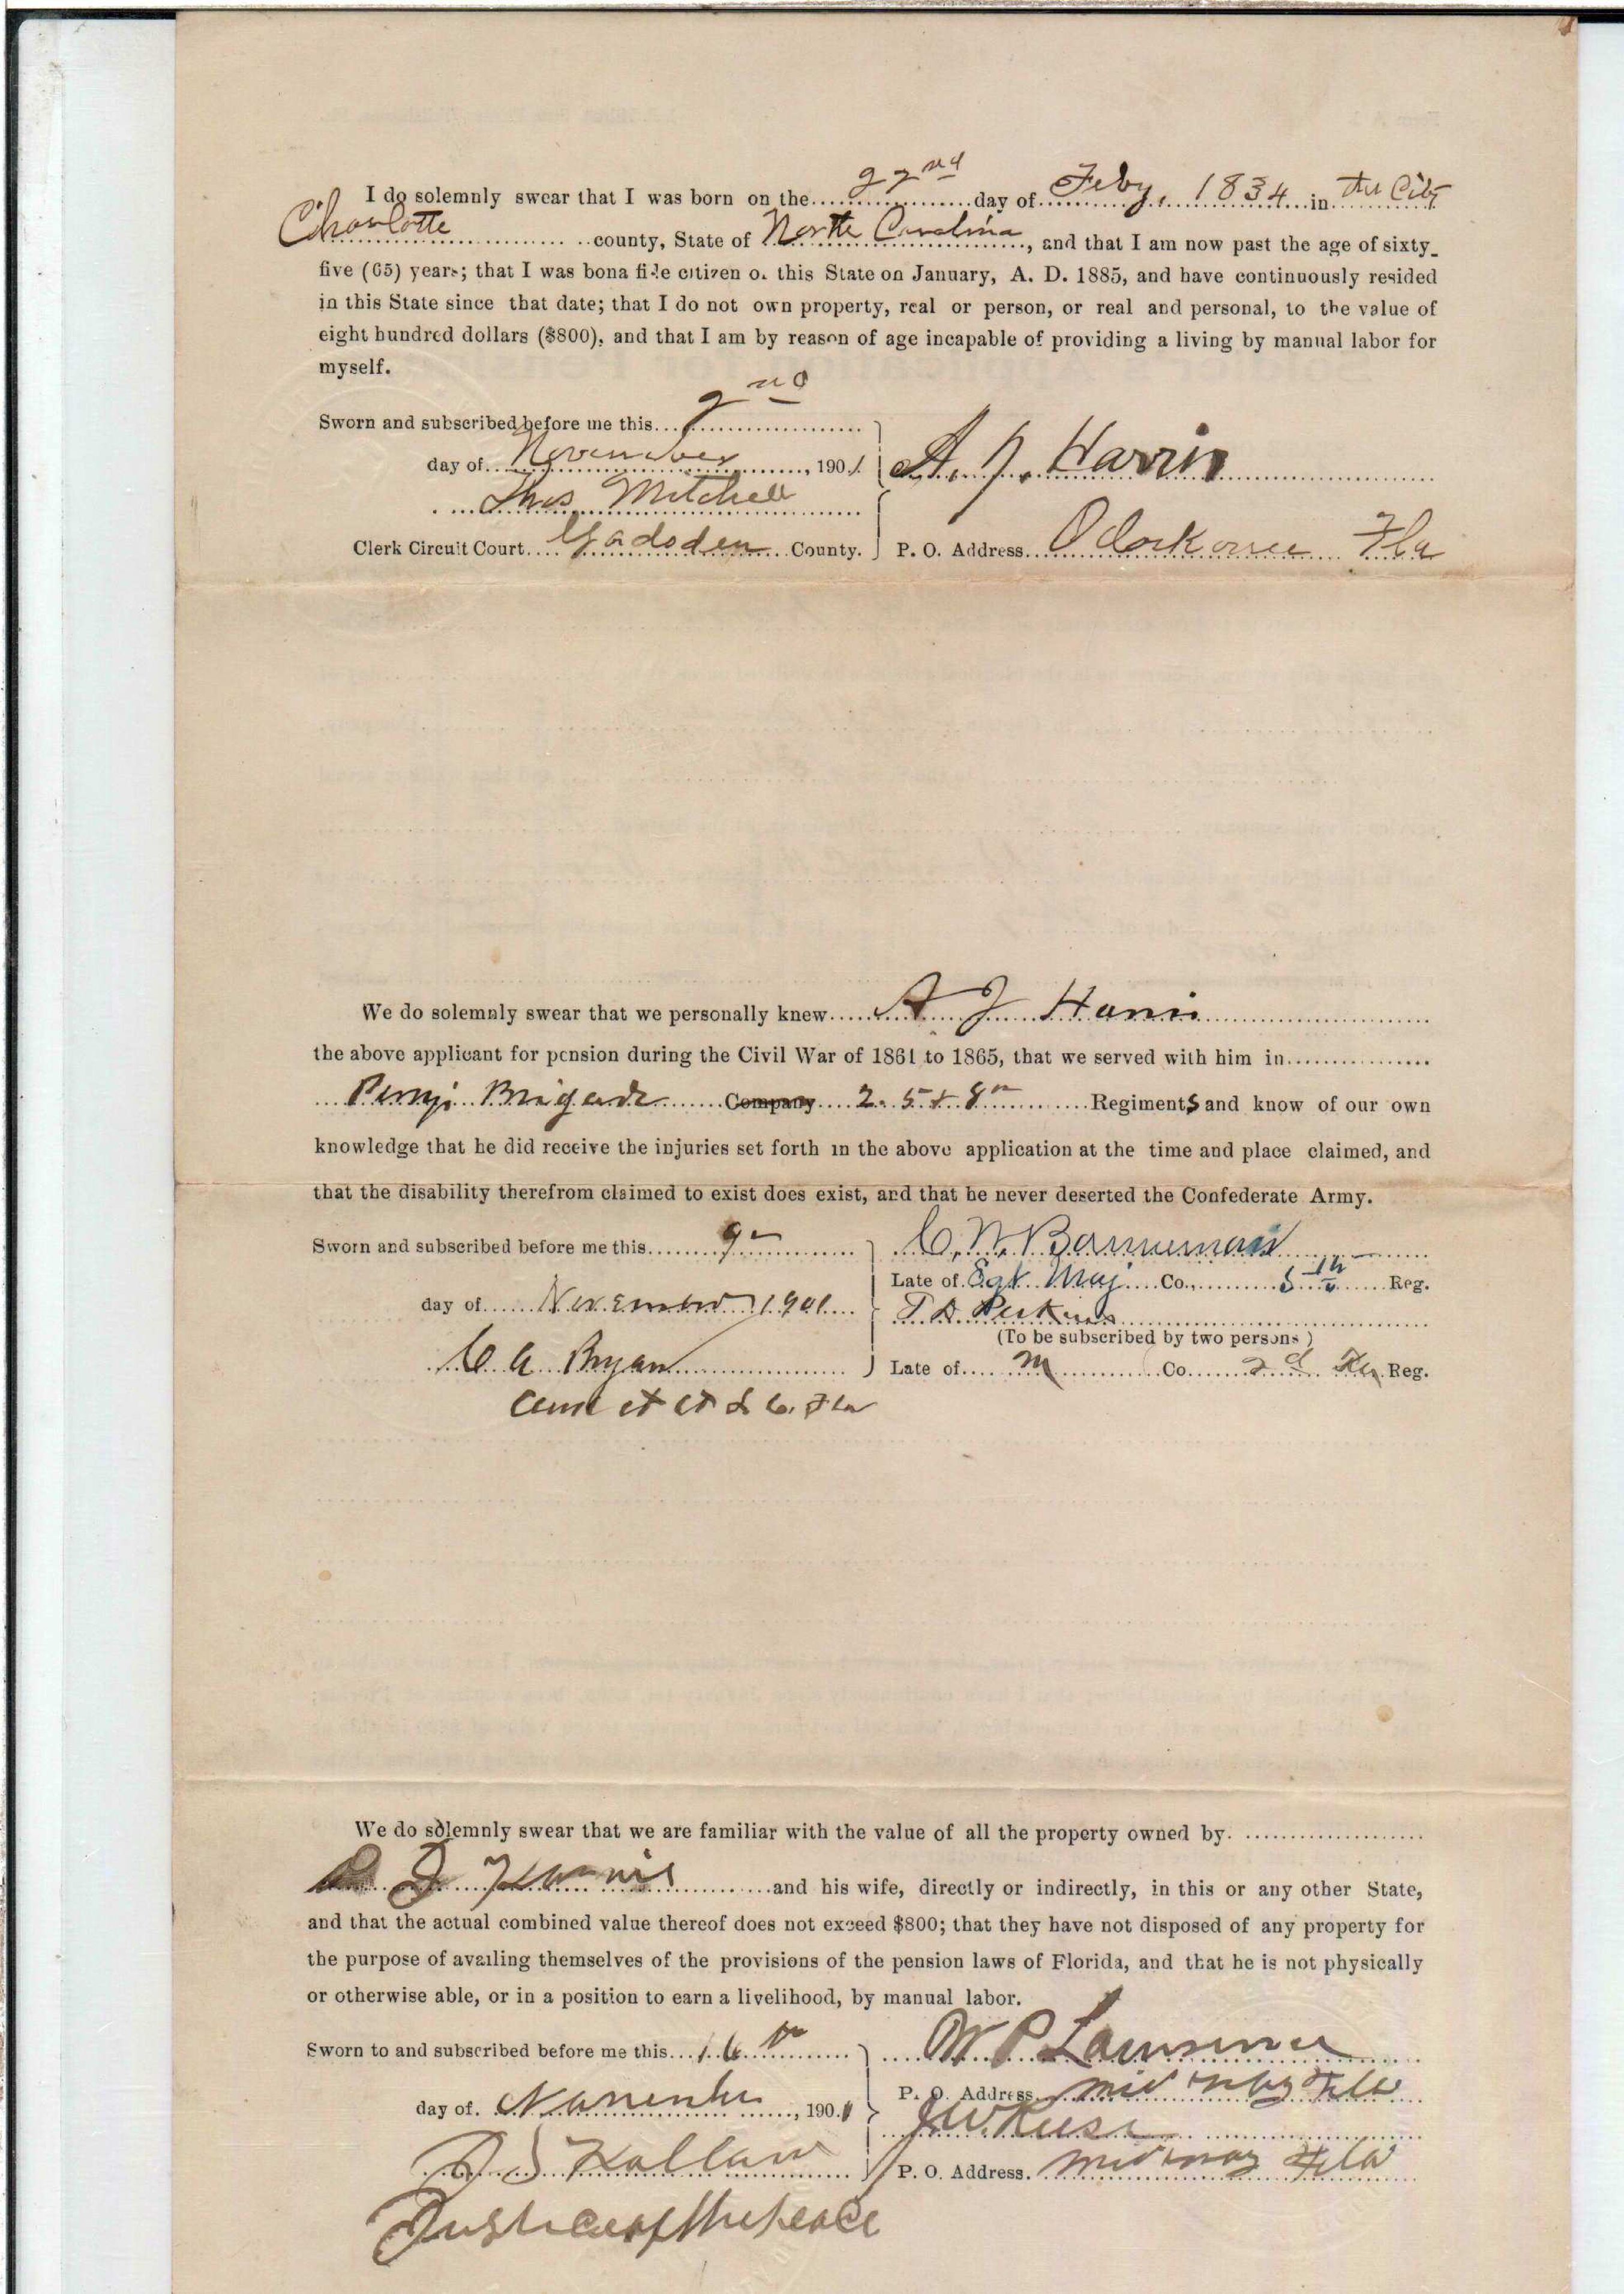 I do solemnly swear that I was born on the 22nd day of Feby, 1834 in the City
Charlotte county, State of North Carolina, and that I am now past the age of sixty-
five (65) years; that I was bona fide citizen of this State on January, A. D. 1885, and have continuously resided
in this State since that date; that I do not own property, real or person, or real and personal, to the value of
eight hundred dollars ($800), and that I am by reason of age incapable of providing a living by manual labor for
myself.
Sworn and subscribed before me this 2nd
day of November, 1901
A. J. Harris
Thos Mitchell
Clerk Circuit Court Gadsden County. P. O. Address Fla
We do solemnly swear that we personally knew A J Harris
the above applicant for pension during the Civil War of 1861 to 1865, that we served with him in
Perrys Brigade Company 2. 5 + 8th Regiments and know of our own
knowledge that he did receive the injuries set forth in the above application at the time and place claimed, and
that the disability therefrom claimed to exist does exist, and that he never deserted the Confederate Army.
Sworn and subscribed before me this 9th
day of November 1901
C A Bryan
Late of Sgt Maj Co., 5th Reg.
T D Perkins
(To be subscribed by two persons)
Late of M Co 2d Fla Reg.
We do solemnly swear that we are familiar with the value of all the property owned by
A J Harris and his wife, directly or indirectly, in this or any other State,
and that the actual combined value thereof does not exceed $800; that they have not disposed of any property for
the purpose of availing themselves of the provisions of the pension laws of Florida, and that he is not physically
or otherwise able, or in a position to earn a livelihood, by manual labor.
Sworn to and subscribed before me this 16th
day of November, 1901
Justice of the peace
W P Lawrence
P. O. Address Midway Fla
P. O. Address. Midway Fla